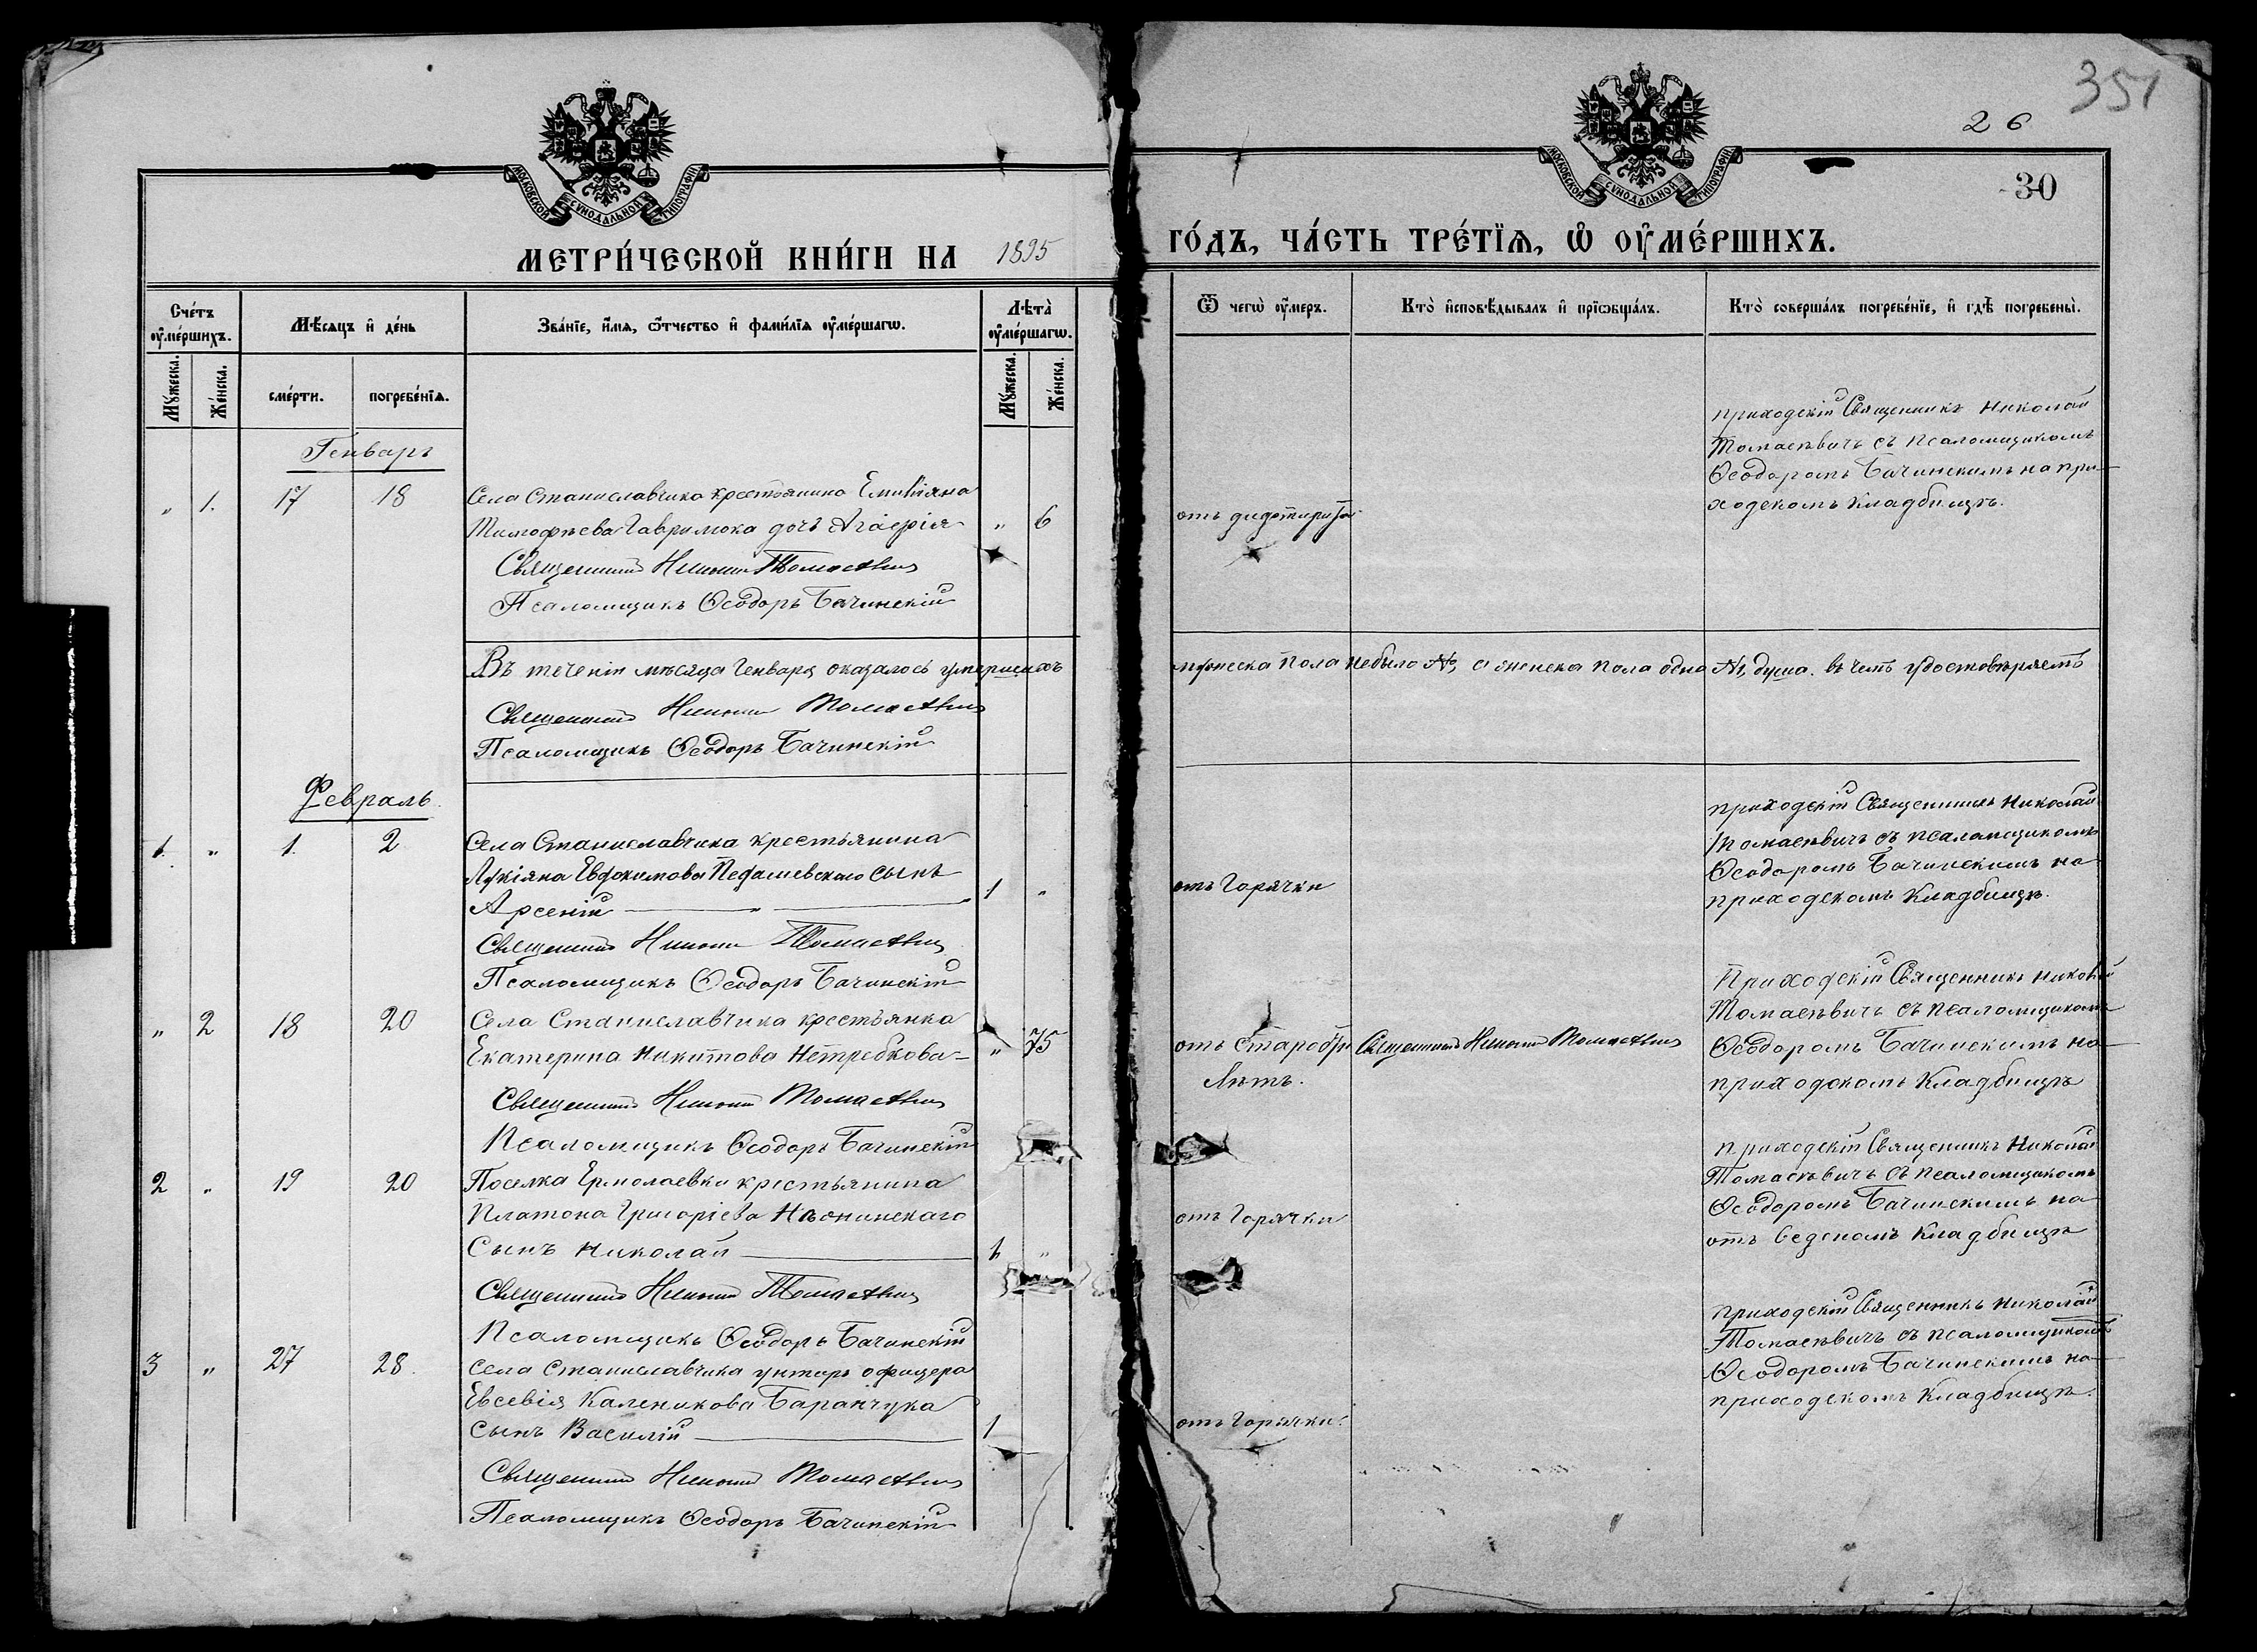 351
26
30
МОСКОВСКОЙ СѴНОДАЛЬНОЙ ТИПОГРАФІИ
МОСКОВСКОЙ СѴНОДАЛЬНОЙ ТИПОГРАФІИ
МЕТРИ́ЧЕСКОЙ КНИ́ГИ НА 1895 ГО́ДЪ, ЧА́СТЬ ТРЕ́ТЇѦ, Ѡ ОУ҆МЕ́РШИХЪ.
Сче́тъ оу҆ме́ршихъ.
Мꙋ́жеска.
Же́нска.
Мѣ́сѧцъ и҆ де́нь
сме́рти.
погребе́нїѧ.
Зва́нїе, и҆́мѧ, ѻ҆́тчество и҆ фами́лїѧ оу҆ме́ршагѡ.
Лѣ́та оу҆ме́ршагѡ.
Мꙋ́жеска.
Же́нска.
Ѿ чегѡ̀ оу҆́меръ.
Кто̀ и҆сповѣ́дывалъ и҆ прїѡбща́лъ.
Кто̀ соверша́лъ погребе́нїе, и҆ гдѣ̀ погребены̀.
Генварь
" 1. 17 18 Села Станиславчика крестьянина Емиліяна
Тимофѣева Гаврилюка дочь " 6
Священникъ Николай Томасевич
Псаломщикъ Ѳеодоръ Бачинскій
отъ дифтирита
приходскій Священникъ Николай
Томасевичъ съ псаломщикомъ
Ѳеодоромъ Бачинскимъ на при-
ходскомъ кладбищѣ.
Въ теченіи мѣсяца Генваря оказалось умершихъ мужеска пола небыло №, а женска пола одна №1, душа. въ чемъ удостовѣряемъ
Священникъ Николай Томасевич
Псаломщикъ Ѳеодоръ Бачинскій
Февраль
1. " 1. 2 Села Станиславчика крестьянина
Лукіяна Евдокимова сынъ
Арсеній — " — 1 "
Священникъ Николай Томасевич
Псаломщикъ Ѳеодоръ Бачинскій
отъ Горячки
приходскій Священникъ Николай
Томасевичъ съ псаломщикомъ
Ѳеодоромъ Бачинскимъ на
приходскомъ кладбищѣ.
" 2 18 20 Села Станиславчика крестьянка
Екатерина Никитова Нетребкова " 75
Священникъ Николай Томасевич
Псаломщикъ Ѳеодоръ Бачинскій
отъ Старости
Лѣтъ.
Священникъ Николай Томасевич
Приходскій Священникъ Николай
Томасевичъ съ псаломщикомъ
Ѳеодоромъ Бачинскимъ на
приходскомъ кладбищѣ
2 " 19 20 Поселка Ермолаевки крестьянина
Платона Григоріева
Сынъ Николай — 1 "
Священникъ Николай Томасевич
Псаломщикъ Ѳеодоръ Бачинскій
отъ Горячки
приходскій Священникъ Николай
Томасевичъ съ псаломщикомъ
Ѳеодоромъ Бачинскимъ на
отведеномъ кладбищѣ
3 " 27 28. Села Станиславчика унтеръ офицера
Евсевія Каленикова Баранчука
Сынъ Василій — 1
Священникъ Николай Томасевич
Псаломщикъ Ѳеодоръ Бачинскій
отъ Горячки.
приходскій Священникъ Николай
Томасевичъ съ псаломщикомъ
Ѳеодоромъ Бачинскимъ на
приходскомъ кладбищѣ.